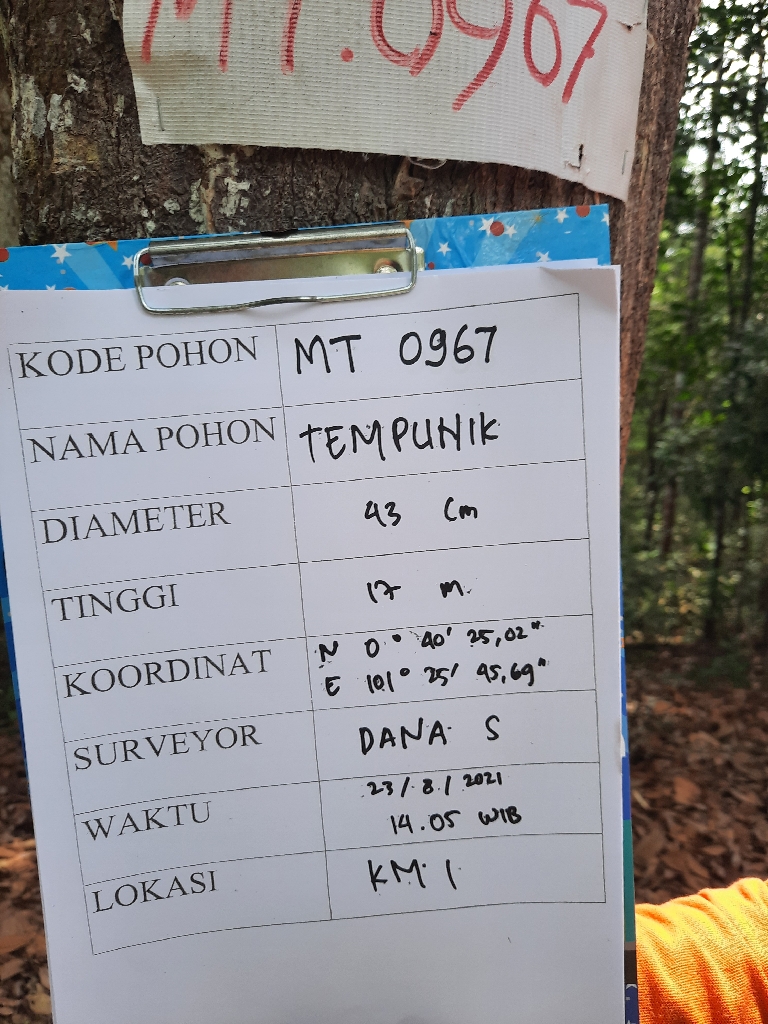 KODE POHON MT 0967
NAMA POHON TEMPUNIK
DIAMETER 43 Cm
TINGGI 17 m
KOORDINAT N 0° 40' 25,02"
E 101° 35' 45,69"
SURVEYOR DANA S
WAKTU 23/8/2021
14.05 WIB
LOKASI KM 1
MTT.0967